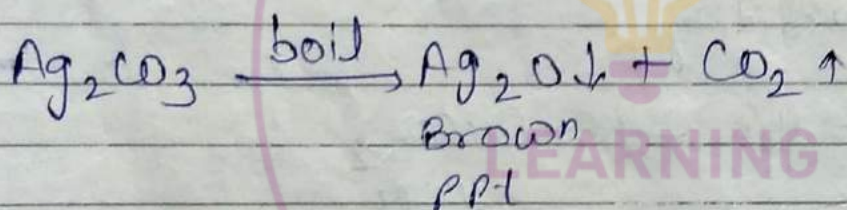 Ag₂CO₃ boil→ Ag₂O↓ + CO₂↑
Brown
LEARNING
ppt